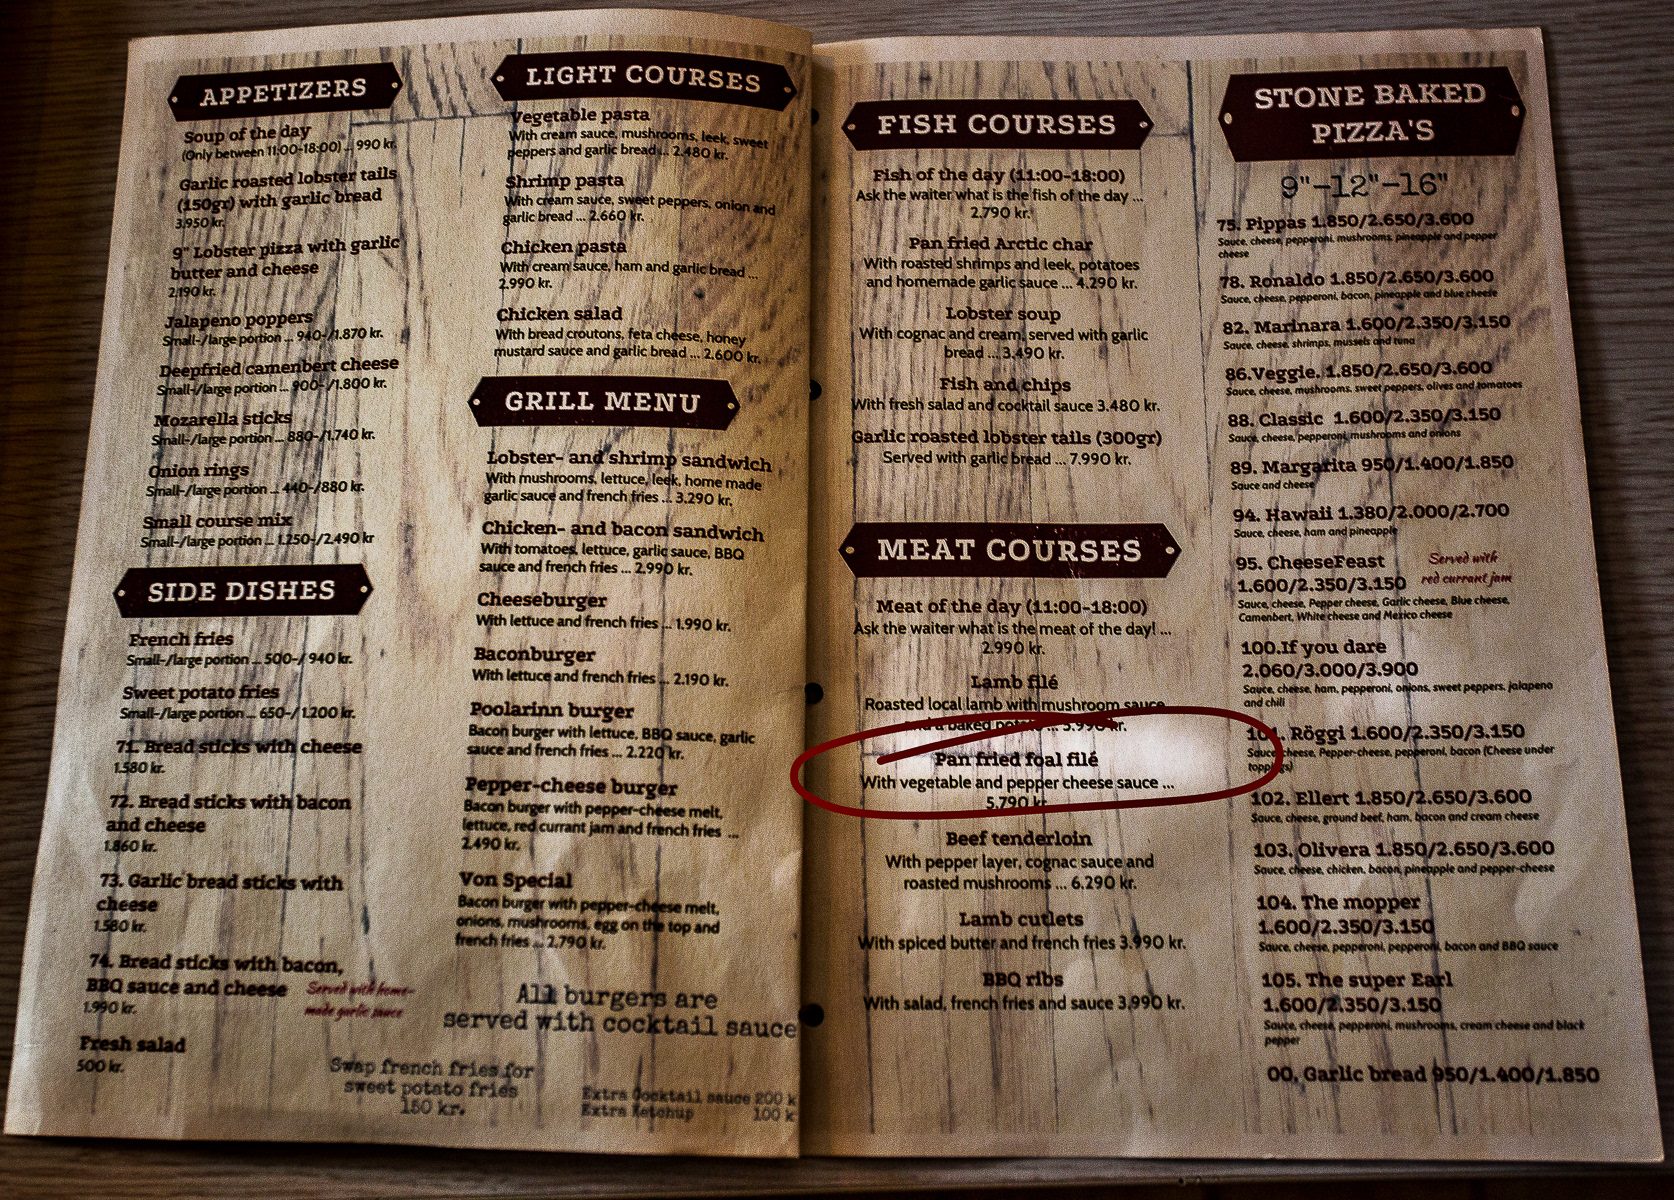 APPETIZERS
Soup of the day
(Only between 11:00-18:00) ... 990 kr.
Garlic roasted lobster tails
(150gr) with garlic bread
3.950 kr.
9" Lobster pizza with garlic
butter and cheese
2.190 kr.
Jalapeno poppers
Small-/large portion ... 940-/1.870 kr.
Deepfried camenbert cheese
Small-/large portion ... 900-/1.800 kr.
Mozarella sticks
Small-/large portion ... 880-/1.740 kr.
Onion rings
Small-/large portion ... 440-/880 kr.
Small course mix
Small-/large portion ... 1.250-/2.490 kr
SIDE DISHES
French fries
Small-/large portion ... 500-/ 940 kr.
Sweet potato fries
Small-/large portion ... 650-/ 1.200 kr.
71. Bread sticks with cheese
1.580 kr.
72. Bread sticks with bacon
and cheese
1.860 kr.
73. Garlic bread sticks with
cheese
1.580 kr.
74. Bread sticks with bacon,
BBQ sauce and cheese
1.990 kr.
Served with home-
made garlic sauce
Fresh salad
500 kr.
Swap french fries for
sweet potato fries
150 kr.
LIGHT COURSES
Vegetable pasta
With cream sauce, mushrooms, leek, sweet
peppers and garlic bread ... 2.480 kr.
Shrimp pasta
With cream sauce, sweet peppers, onion and
garlic bread ... 2.660 kr.
Chicken pasta
With cream sauce, ham and garlic bread ...
2.990 kr.
Chicken salad
With bread croutons, feta cheese, honey
mustard sauce and garlic bread ... 2.600 kr.
GRILL MENU
Lobster- and shrimp sandwich
With mushrooms, lettuce, leek, home made
garlic sauce and french fries ... 3.290 kr.
Chicken- and bacon sandwich
With tomatoes, lettuce, garlic sauce, BBQ
sauce and french fries ... 2.990 kr.
Cheeseburger
With lettuce and french fries ... 1.990 kr.
Baconburger
With lettuce and french fries ... 2.190 kr.
Poolarinn burger
Bacon burger with lettuce, BBQ sauce, garlic
sauce and french fries ... 2.220 kr.
Pepper-cheese burger
Bacon burger with pepper-cheese melt,
lettuce, red currant jam and french fries ...
2.490 kr.
Von Special
Bacon burger with pepper-cheese melt,
onions, mushrooms, egg on the top and
french fries ... 2.790 kr.
All burgers are
served with cocktail sauce
Extra Cocktail sauce 200 k
Extra Ketchup 100 k
FISH COURSES
Fish of the day (11:00-18:00)
Ask the waiter what is the fish of the day ...
2.790 kr.
Pan fried Arctic char
With roasted shrimps and leek, potatoes
and homemade garlic sauce ... 4.290 kr.
Lobster soup
With cognac and cream, served with garlic
bread ... 3.490 kr.
Fish and chips
With fresh salad and cocktail sauce 3.480 kr.
Garlic roasted lobster tails (300gr)
Served with garlic bread ... 7.990 kr.
MEAT COURSES
Meat of the day (11:00-18:00)
Ask the waiter what is the meat of the day! ...
2.990 kr.
Lamb filé
Roasted local lamb with mushroom sauce
and a baked potato ... 5.990 kr.
Pan fried foal filé
With vegetable and pepper cheese sauce ...
5.790 kr.
Beef tenderloin
With pepper layer, cognac sauce and
roasted mushrooms ... 6.290 kr.
Lamb cutlets
With spiced butter and french fries 3.990 kr.
BBQ ribs
With salad, french fries and sauce 3.990 kr.
STONE BAKED
PIZZA'S
9"-12"-16"
75. Pippas 1.850/2.650/3.600
Sauce, cheese, pepperoni, mushrooms, pineapple and pepper
cheese
78. Ronaldo 1.850/2.650/3.600
Sauce, cheese, pepperoni, bacon, pineapple and blue cheese
82. Marinara 1.600/2.350/3.150
Sauce, cheese, shrimps, mussels and tuna
86.Veggie. 1.850/2.650/3.600
Sauce, cheese, mushrooms, sweet peppers, olives and tomatoes
88. Classic 1.600/2.350/3.150
Sauce, cheese, pepperoni, mushrooms and onions
89. Margarita 950/1.400/1.850
Sauce and cheese
94. Hawaii 1.380/2.000/2.700
Sauce, cheese, ham and pineapple
95. CheeseFeast
1.600/2.350/3.150
Served with
red currant jam
Sauce, cheese, Pepper cheese, Garlic cheese, Blue cheese,
Camenbert, White cheese and Mexico cheese
100.If you dare
2.060/3.000/3.900
Sauce, cheese, ham, pepperoni, onions, sweet peppers, jalapeno
and chili
101. Röggi 1.600/2.350/3.150
Sauce, cheese, Pepper-cheese, pepperoni, bacon (Cheese under
toppings)
102. Ellert 1.850/2.650/3.600
Sauce, cheese, ground beef, ham, bacon and cream cheese
103. Olivera 1.850/2.650/3.600
Sauce, cheese, chicken, bacon, pineapple and pepper-cheese
104. The mopper
1.600/2.350/3.150
Sauce, cheese, pepperoni, pepperoni, bacon and BBQ sauce
105. The super Earl
1.600/2.350/3.150
Sauce, cheese, pepperoni, mushrooms, cream cheese and black
pepper
00. Garlic bread 950/1.400/1.850